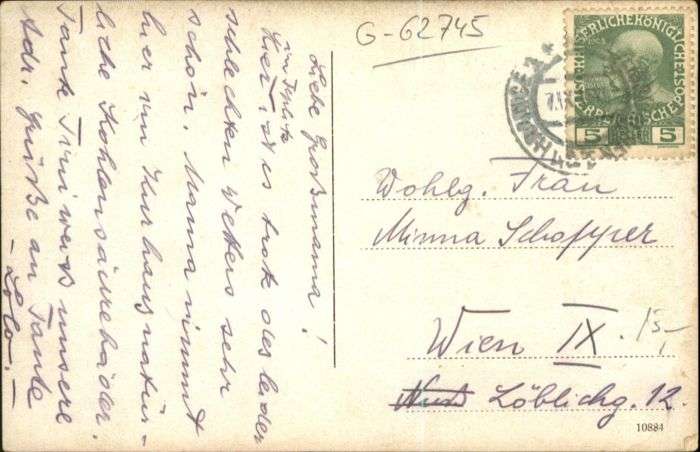 G-62745
KAISERLICHE KÖNIGLICHE
ÖSTERREICHISCHE POST
5 5
HRANICE
Liebe Großmama!
Hier in Teplitz
ist es trotz des leider
schlechten Wetters sehr
schön. Mama nimmt
hier im Kurhaus natür-
liche Kohlensäurebäder.
Tante Tini weiß unsere
Adr. Grüße an Tante
- Lolo. -
Wohlg. Frau
Minna Schopper
Wien IX.
Löblichg. 12.
10884